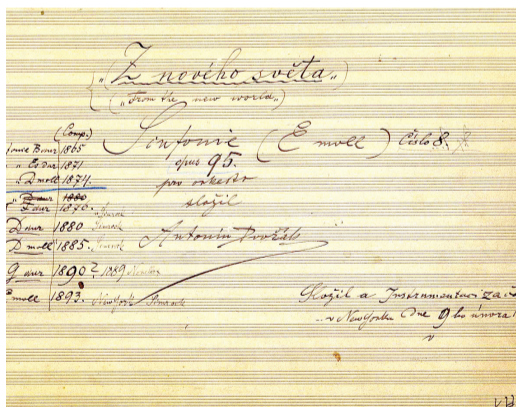 „Z nového světa„
(„From the new world„)
Sinfonie (E moll) Číslo 8.
opus 95.
pro orkestr
složil
Antonín Dvořák
(Comp.)
fonie B dur 1865
„ Es dur 1871
„ D moll 1874.
„ D dur 1880
F dur 1876.
D dur 1880 Simrock
D moll 1885. Simrock
G dur 1890? 1889 Novello
E moll 1893. New York Simrock
Složil a Instrumentaci
v New Yorku Dne 9ho února